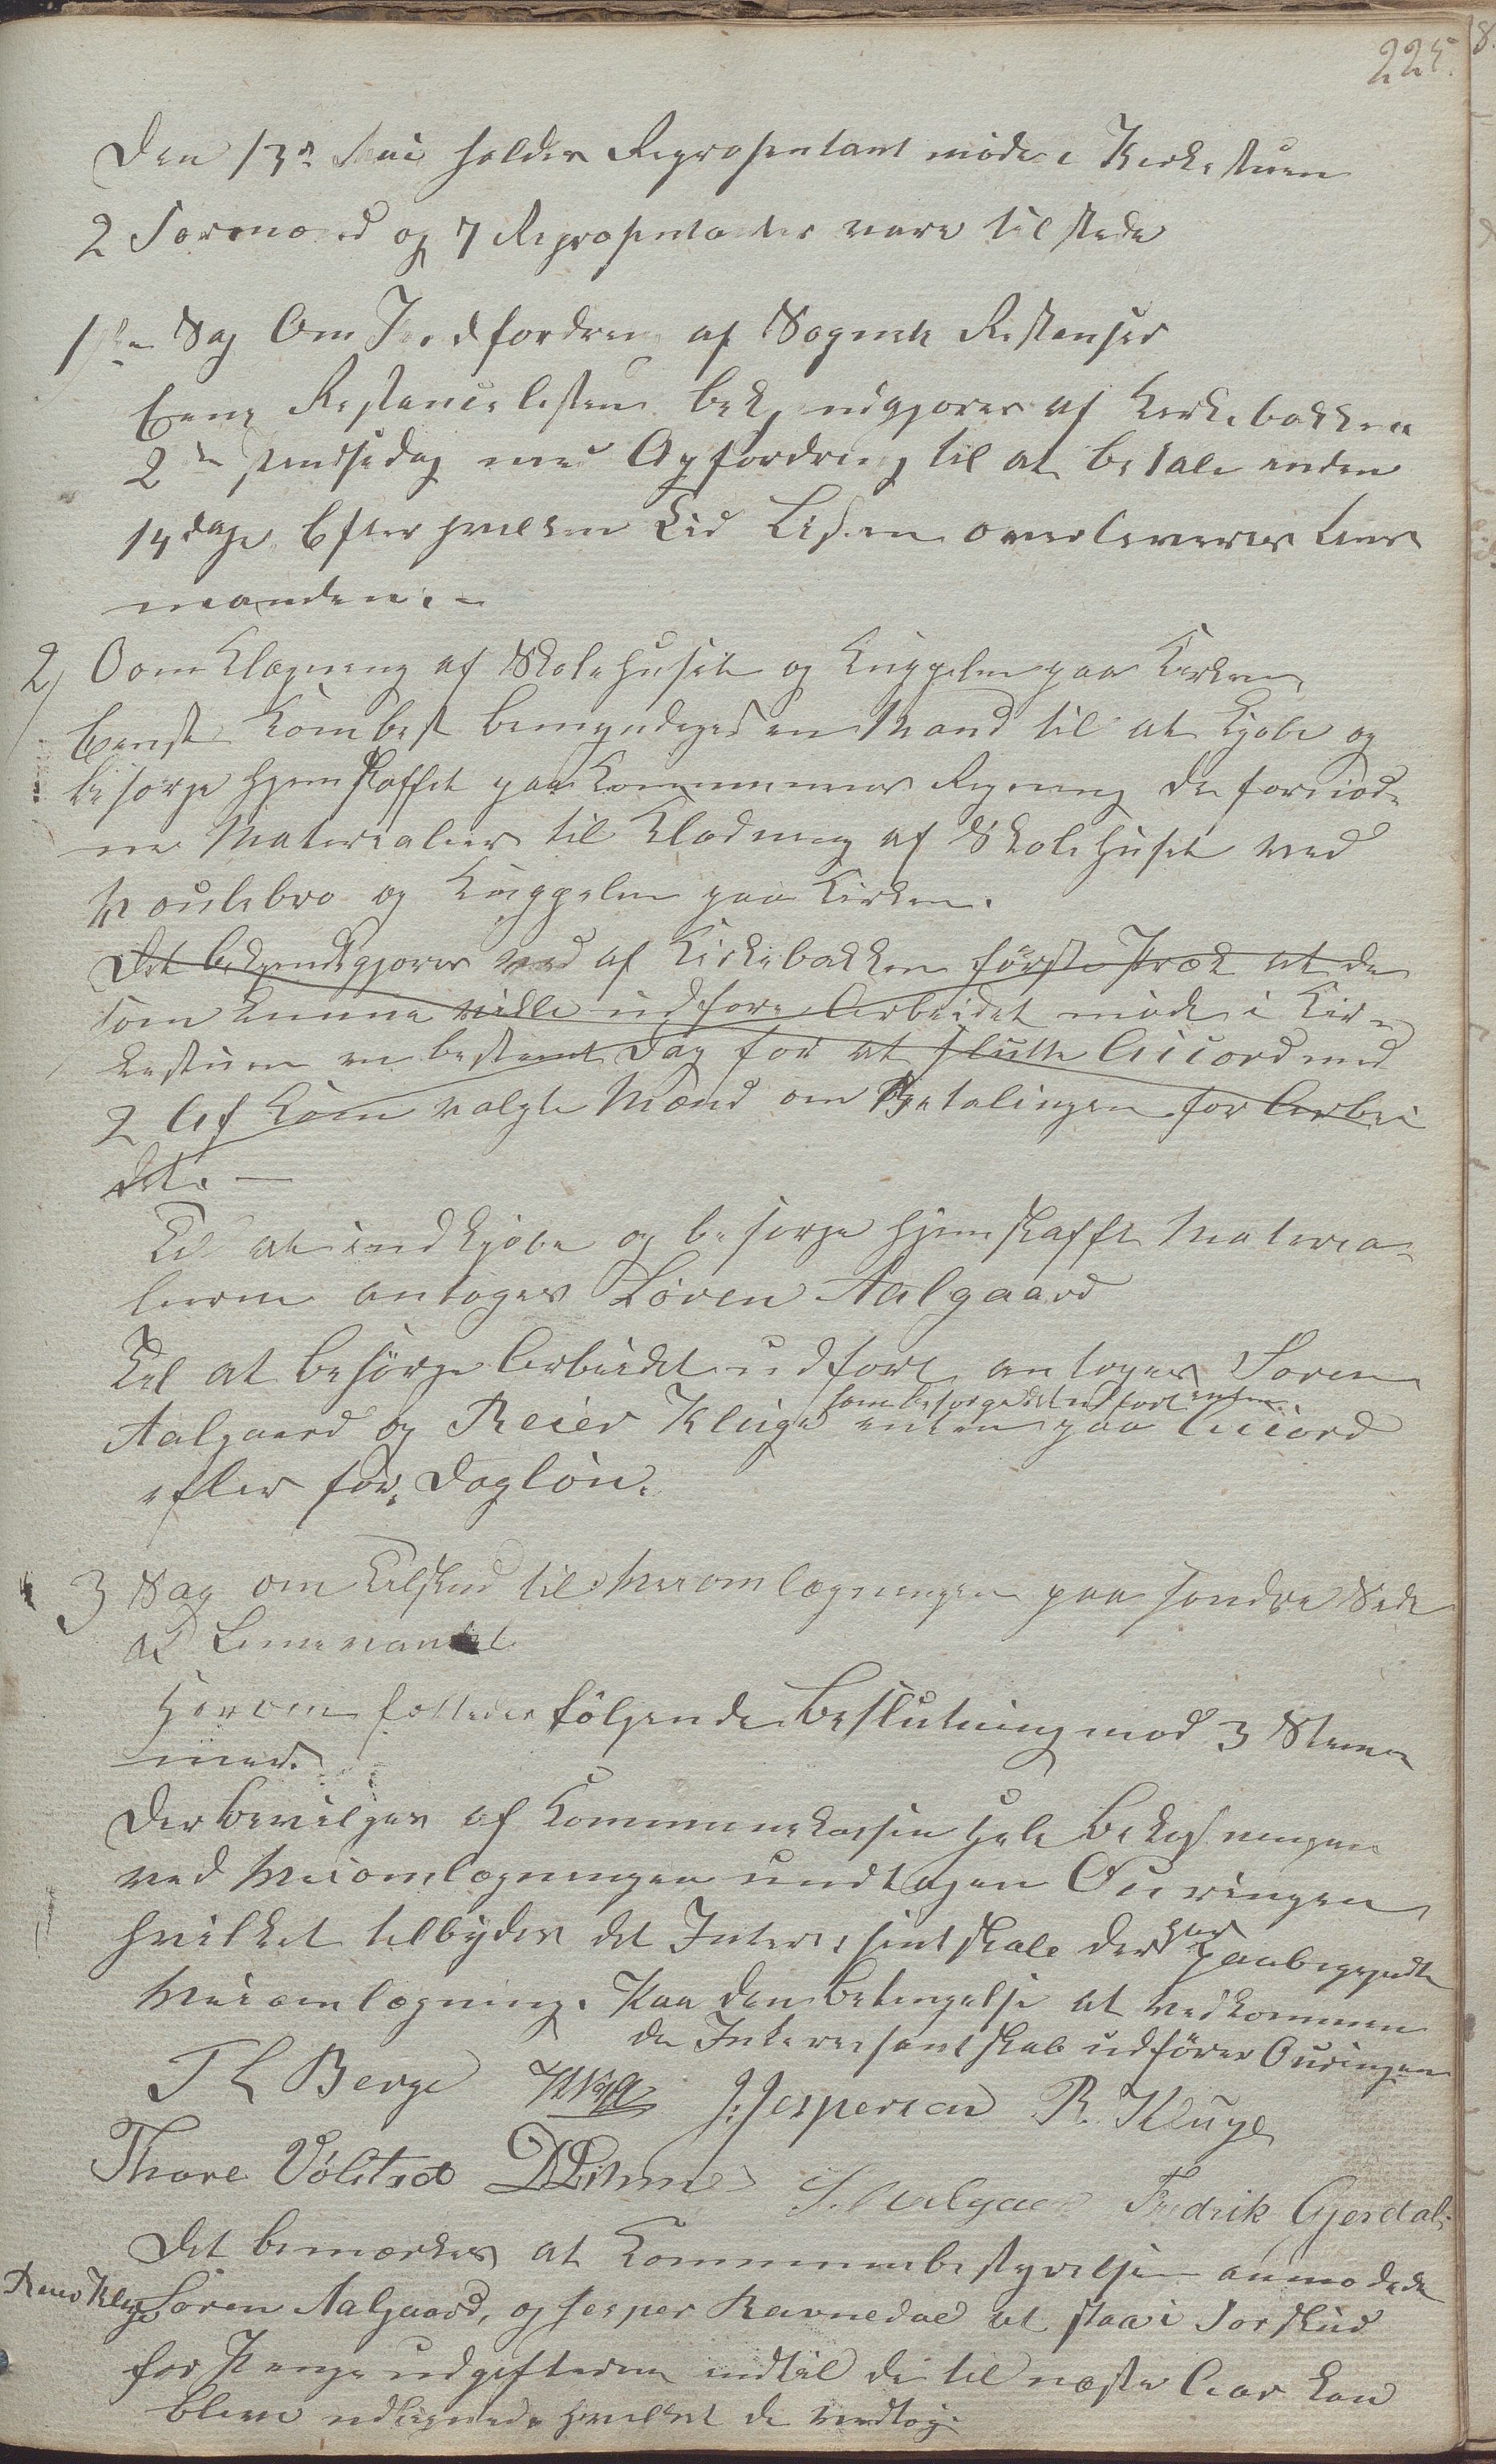 225.
Den 13de Mai holdes Repræsentant møde i Kirkestuen
2 Formænd og 7 Repræsentanter vare tilstede
1ste Sag Om Indfordren af Sogne Restanser
Eene Restancelisten bekjendtgjøres af Kirkebakken
2den Pindsedag med Opfordring til at betale inden
14 dage. Efter hvilken Tid Listen overleveres Lens
manden.-
2) Oom Klædning af Skolehuset og Kuppelen paa Kirken
Eenst Kombest bemyndiges en Mand til at kjøbe og
besørge hjemskaffet paa Kommunens Regning de fornød-
ne Materialier til Klædning af Skolehuset ved
Moulebro og Kuppelen paa Kirken.
Det bekjendtgjøres ved af Kirkebakken første Præk at de
som kunne ville udføre Arbeidet møde i Kir-
kestuen en bestemt Dag for at slutte Accord med
2 Af Kom valgte Mænd om Betalingen for Arbei
det. —
Til at indkjøbe og besørge hjemskafft Materia-
lierne antoges Sören Aalgaard
Til at besörge Arbeidet udført antoges Sören
som besørge det udført enten
Aalgaard og Reier Kluge enten paa Accord
eller for Daglön.
3 Sag om Tilskud til Veiomlægningen paa søndre Side
af Limevandet
Herom fattedes fölgende Beslutning med 3 Stem-
mer.
Der bevilges af Kommunekassen hele Bekostningen
ved Veiomlægningen undtagen Ouringen
hvilket tilbydes det Interessentskab der har paabegyndt
Veiomlægning. Paa den Betingelse at vedkommen
de Interessentskab udförer Ouringen
T L Berge J. Jespersen R. Kluge
Thore Völstad S. Aalgaar Fredrik Gjerdal.
Det bemærkes at Kommunebestyrelsen anmodede
Reier Kluge Sören Aalgaard, og Jesper Ravnedal at staa i Forskud
for Penge udgifterne indtil de til næste Aar kan
blive udlignede hvilket de vedtog.